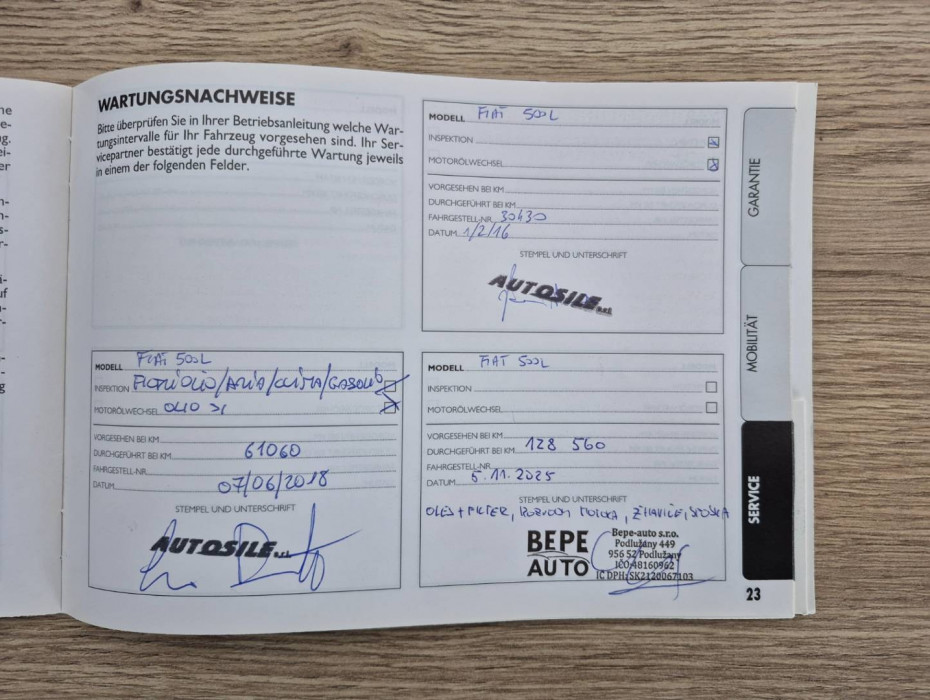 WARTUNGSNACHWEISE
Bitte überprüfen Sie in Ihrer Betriebsanleitung welche War-
tungsintervalle für Ihr Fahrzeug vorgesehen sind. Ihr Ser-
vicepartner bestätigt jede durchgeführte Wartung jeweils
in einem der folgenden Felder.
MODELL FIAT 500L
INSPEKTION
MOTORÖLWECHSEL
VORGESEHEN BEI KM
DURCHGEFÜHRT BEI KM
FAHRGESTELL-NR. 30430
DATUM 1/2/16
STEMPEL UND UNTERSCHRIFT
AUTOSILE s.r.l.
MODELL FIAT 500L
INSPEKTION
MOTORÖLWECHSEL OLIO SI
VORGESEHEN BEI KM
DURCHGEFÜHRT BEI KM 61060
FAHRGESTELL-NR.
DATUM 07/06/2018
STEMPEL UND UNTERSCHRIFT
AUTOSILE s.r.l.
MODELL FIAT 500L
INSPEKTION
MOTORÖLWECHSEL
VORGESEHEN BEI KM
DURCHGEFÜHRT BEI KM 128 560
FAHRGESTELL-NR.
DATUM 5.11.2025
STEMPEL UND UNTERSCHRIFT
OLEJ + FILTER, ROZVODY MOTORA, ŽHAVIČE, SPOJKA
BEPE
AUTO
Bepe-auto s.r.o.
Podlužany 449
956 52 Podlužany
IČO:48160962
IČ DPH: SK2120067103
GARANTIE
MOBILITÄT
SERVICE
23